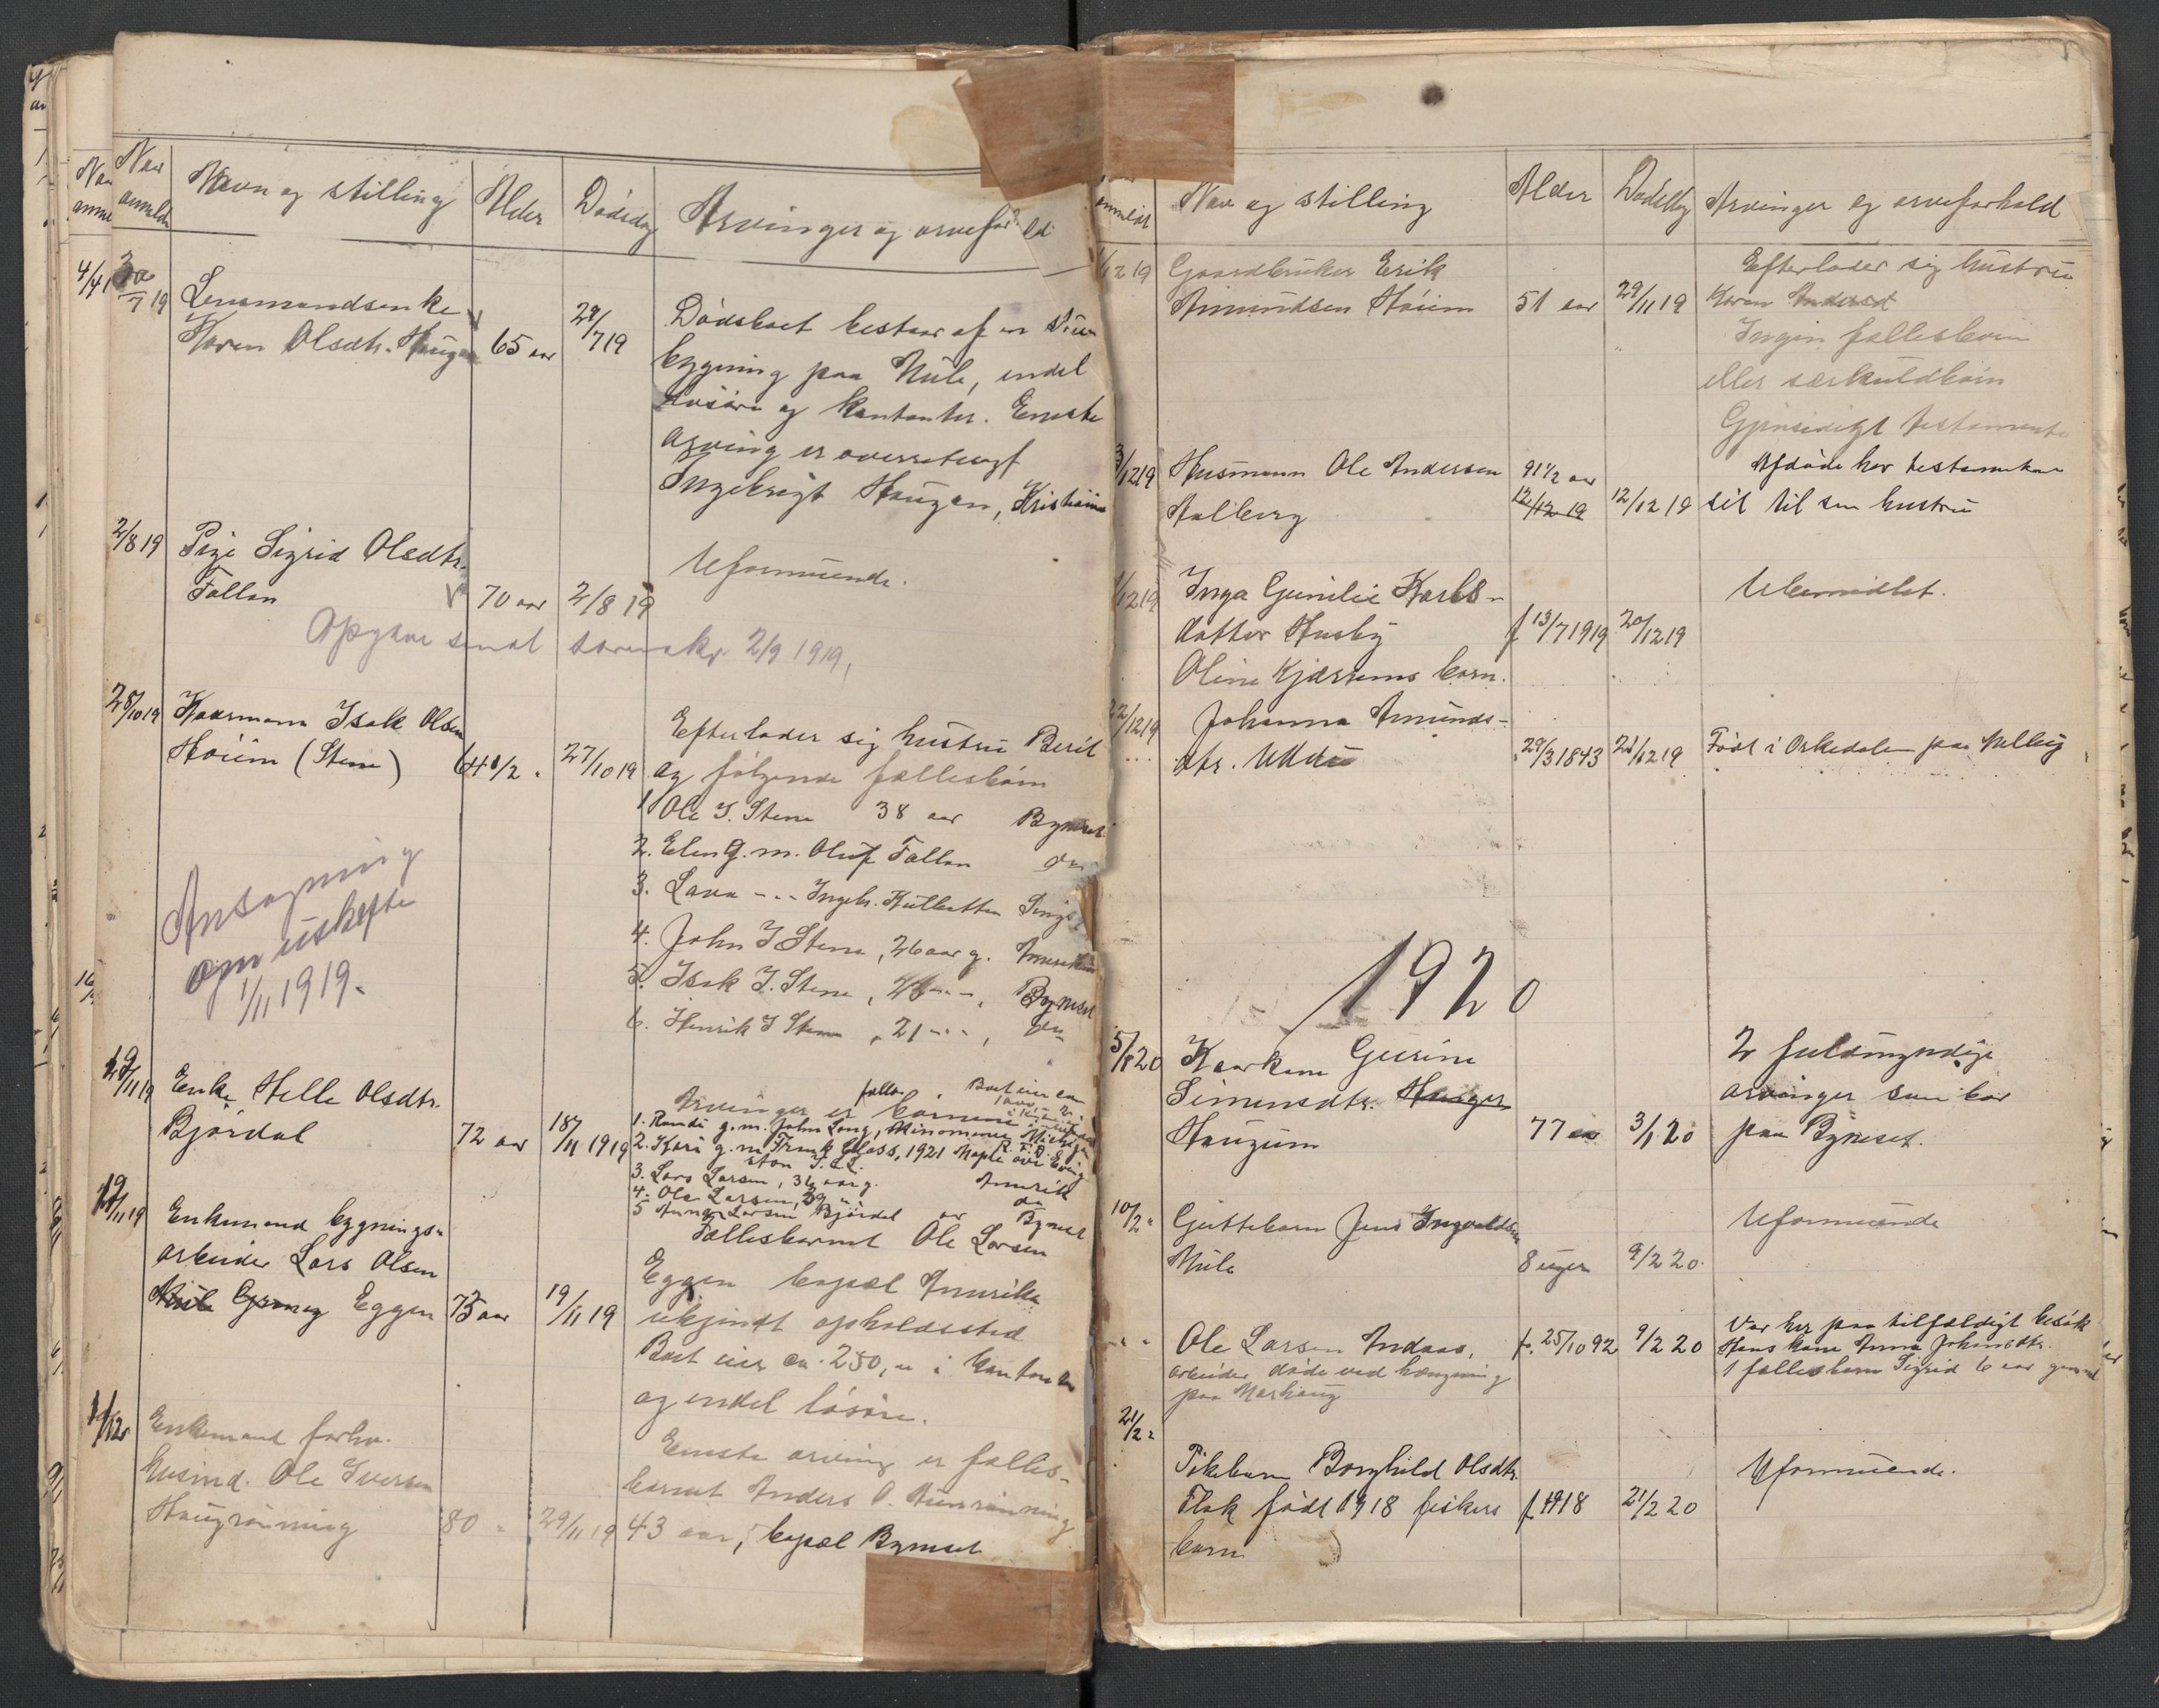 Naar anmeldt
Navn og stilling
Alder
Dødsdag
Arvinger og arveforhold
30/7 19
Lensmandsenke
Karen Olsdtr. Haugen
65 aar
29/7 19
Dødsboet bestaar af en
bygning paa Mule, endel
løsøre og kontanter. Eneste
arving er overretssagf
Ingebrigt Haugan, Kristiania
2/8 19
Pige Sigrid Olsdtr.
Follan
70 aar
2/8 19
Uformuende.
Opgave sendt sorenskr. 2/9 1919.
28/10 19
Kaarmann Isak Olsen
Høium (Stene)
64 1/2 "
27/10 19
Efterlader sig hustru Berit
og følgende fællesbørn
1 Ole I. Stene 38 aar Bynæset
2. Elen g. m. Oluf Follan do
3. Lava - - - Ingebr. Kulbotten
4. John I Stene, 26 aar g. Amerika
5. Isak I. Stene, Bynæset
6. Henrik I Stene, 21 - - -, do
Ansøgning
om uskifte
1/11 1919.
19/11 19
Enke Helle Olsdtr.
Bjørdal
72 aar
18/11 1919
Arvinger er børnene
1. Randi g. m. John Long, Minominee Michigan
2. Kari g. m. Frank Glass, 1921 Maple ave
3. Lars Larsen, 36 aar g. Amerik
4. Ole Larsen, 39 " do
5 Anne Larsen Bjørdal av Bynæset
19/11 19
Enkemand bygnings-
arbeider Lars Olsen
Mule Eggen
75 aar
19/11 19
Fællesbarnet Ole Larsen
Eggen bopæl Amerika
ukjendt opholdssted
Boet eier ca. 250,- i kontanter
og endel løsøre.
1/12
Enkemand forhv.
husmd. Ole Iversen
Haugrønning
80 "
29/11 19
Eneste arving er fælles-
barnet Anders O. Aunrønning
43 aar, bopæl Bynæset
anmeldt
Navn og stilling
Alder
Dødsdag
Arvinger og arveforhold
1/12 19
Gaardbruker Erik
Amundsen Høium
51 aar
29/11 19
Efterlader sig hustru
Karen Andersdt
Ingen fællesbørn
eller særkuldbørn
Gjensidigt testamente
3/12 19
Husmann Ole Andersen
Aalberg
91 1/2 aar
12/12 19
12/12 19
Afdøde har testamentert
sit til sin hustru
1/12 19
Inga Gunilie Karls-
datter Husby
Oline Kjærems barn.
f 13/7 1919
20/12 19
Ubemidlet.
22/12 19
Johanna Amunds-
dtr. Uddu
29/3 1843
21/12 19
Født i Orkedalen paa
1920
5/1 20
Kaarkone Gurine
Simensdtr. Haugen
Haugum
77 aar
3/1 20
2 fuldmyndige
arvinger som bor
paa Byneset.
10/2 "
Guttebarn Jens Ingvaldsen
Mule
8 uger
9/2 20.
Uformuende
" "
Ole Larsen Indaas,
arbeider døde ved hængning
paa Marhaug
f. 25/10 92
9/2 20
Var her paa tilfældigt besøk
Hans kone Anna Johansdtr.
1 fællesbarn Sigrid 6 aar gammel
21/2 "
Pikebarn Borghild Olsdtr.
Flak født 1918 fiskers
barn
f. 1918
21/2 20
Uformuende.